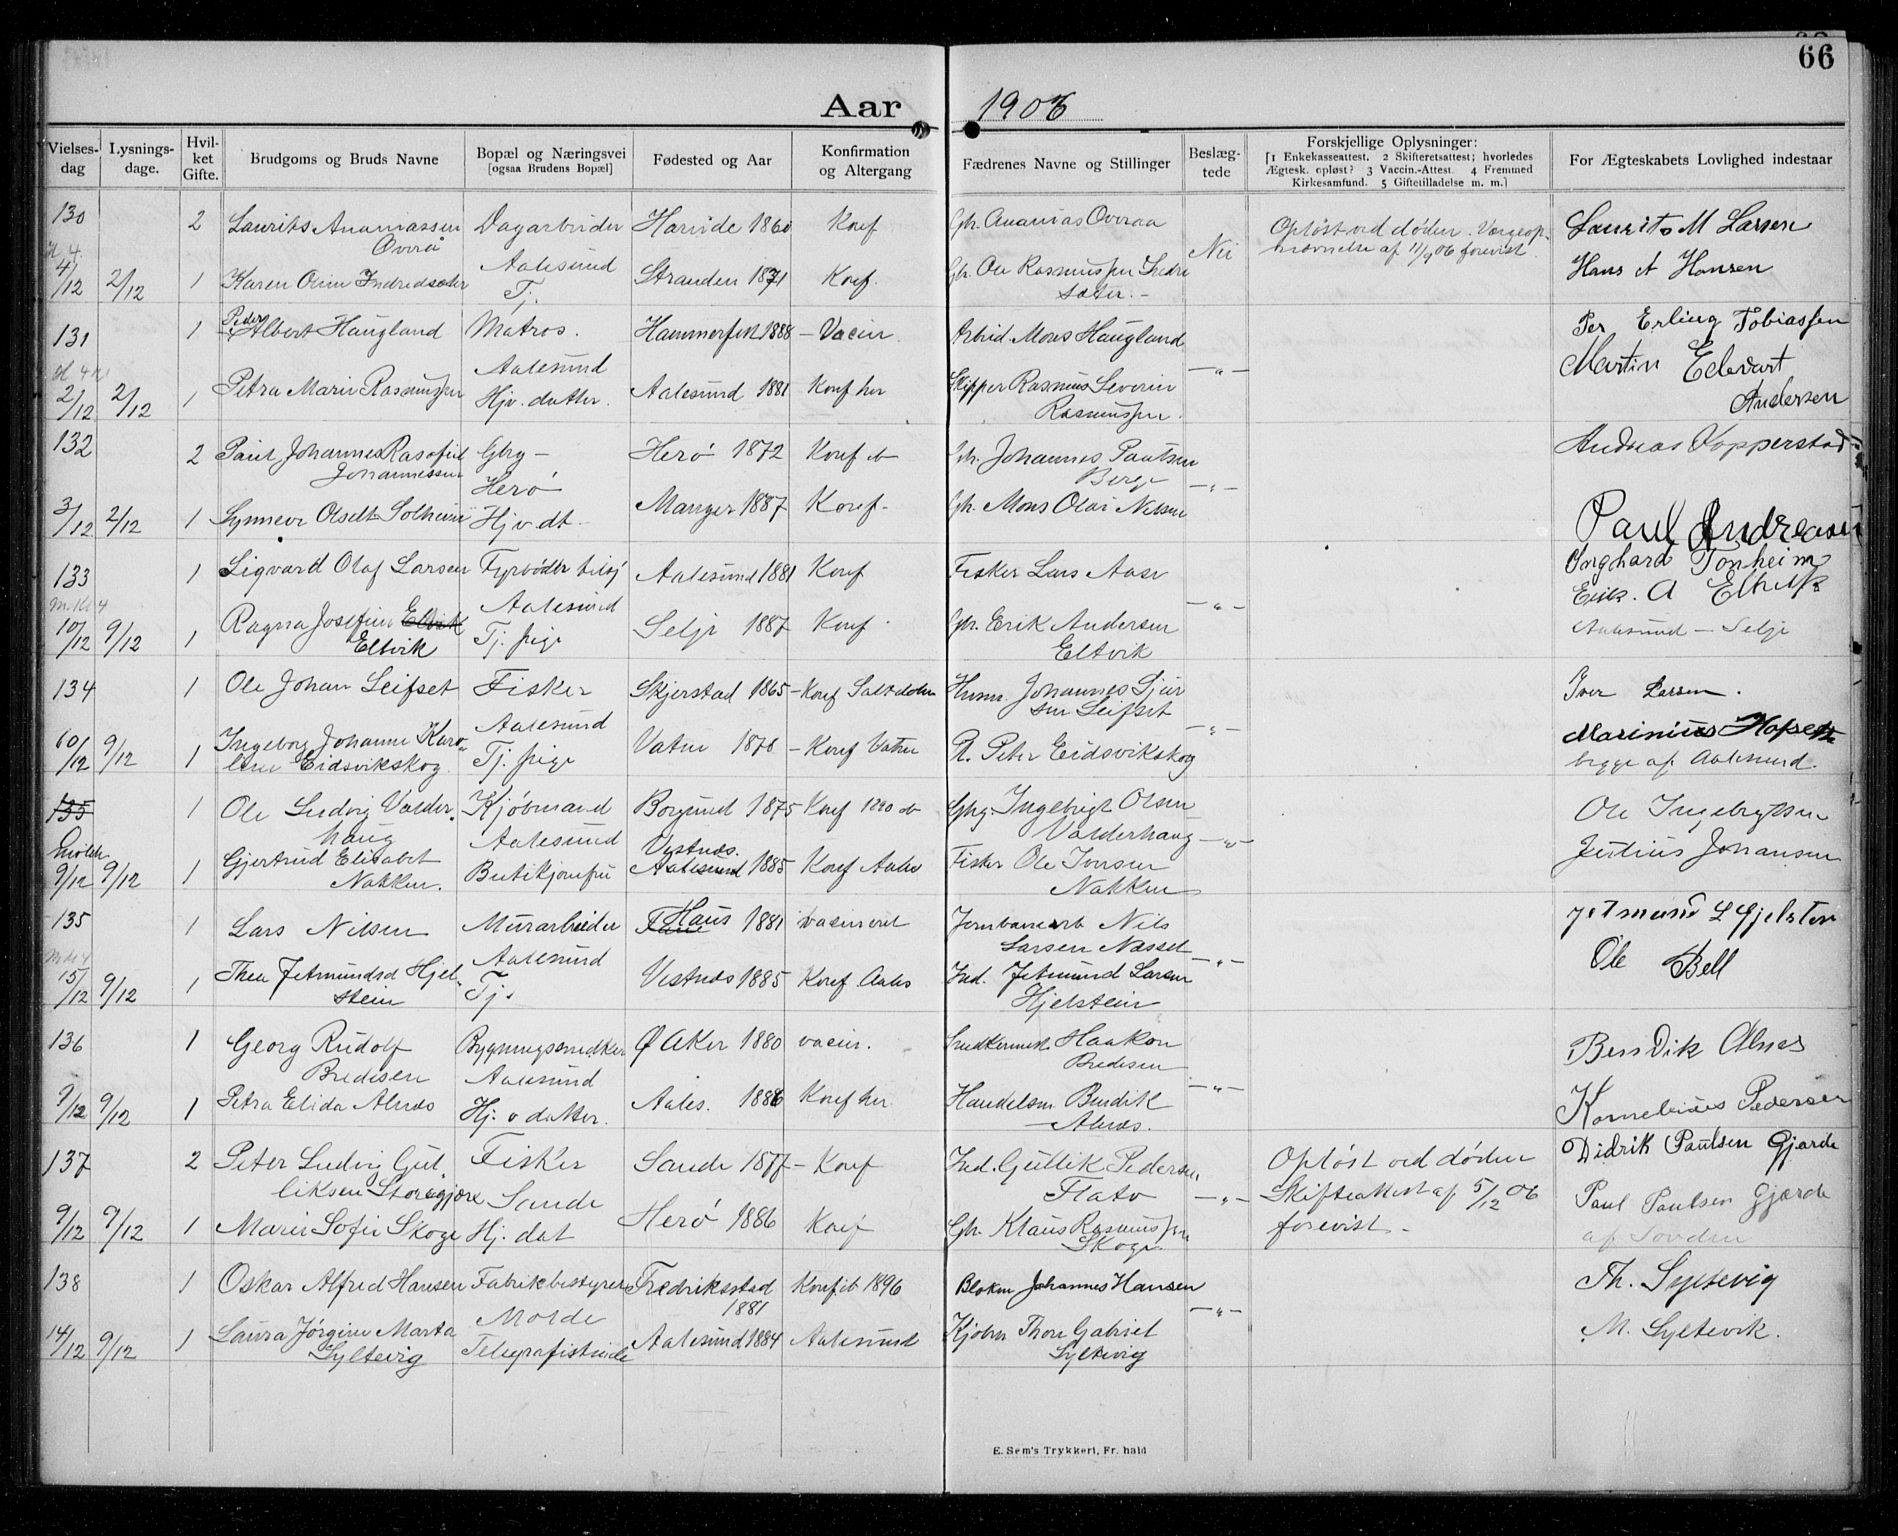 66
Aar 1906
Vielses-dag
Lysnings-dage.
Hvil-ket Gifte.
Brudgoms og Bruds Navne
Bopæl og Næringsvei [ogsaa Brudens Bopæl]
Fødested og Aar
Konfirmation og Altergang
Fædrenes Navne og Stillinger
Beslæg-tede
Forskjellige Oplysninger: [1 Enkekasseattest. 2 Skifteretsattest; hvorledes Ægtesk. opløst? 3 Vaccin.-Attest. 4 Fremmed Kirkesamfund. 5 Giftetilladelse m. m.]
For Ægteskabets Lovlighed indestaar
130 2 Laurits Ananiassen Dagarbeider Hareide 1860 Konf Gbr. Ananias Overaa Opløst ved døden. Værgeop- Laurits M Larsen
Overå Aalesund Nei nævnelse af 11/9 06 forevist.
4/12 2/12 1 Karen Oline Indredsæter Tj. Stranden 1871 Konf. Gbr. Ole Rasmussen Indre Hans A Hansen
sæter. -
131 1 Peder Albert Haugland Matros. Hammerfest 1888 - Vacin. Arbeid. Mons Haugland Per Erling Tobiassen
Aalesund - " - Martin Edevart
2/12 2/12 1 Petra Marie Rasmussen Hjv. datter. Aalesund 1881 Konf her Skipper Rasmus Severin Andersen
Rasmussen.
132 2 Paul Johannes Gbr - Herø 1872 Konf Gbr. Johannes Paulsen Andreas Kopperstad
Johannessen Herø Berge - " -
3/12 2/12 1 Synneve Olsdt Solheim Hjv. dt. Manger 1887 Konf- Gbr. Mons Olai Nilsen Paul Andreasen
133 1 Sigvard Olaf Larsen Fyrbøder tilsj Aalesund 1881 Konf Fisker Lars Aase Inghard Tonheim
Aalesund - " - Erik. A Eltvik
10/12 9/12 1 Ragna Josefine Eltvik Tj. pige Selje 1887 Konf. Gbr. Erik Andersen Aalesund - Selje
Eltvik Eltvik
134 1 Ole Johan Leifset Fisker Skjerstad 1865 - Konf Saltdalen Husm. Johannes Sjur Iver Larsen.
Aalesund sen Leifset - " - Marinius Hofseth
10/12 9/12 1 Ingeborg Johanne Karo- Tj. pige Vatne 1876 - Konf Vatne P. Peter Eidsvikskog begge af Aalesund.
line Eidsvikskog.
135 1 Ole Ludvig Valder- Kjøbmand Borgund 1875 Konf 1890 Gbr. Ingebrigt Olsen Ole Ingebrigtsen
haug Aalesund Vestnes. Valderhaug - " -
9/12 9/12 1 Gjertrud Elisabet Butikjomfru Aalesund 1885 Konf Aales Fisker Ole Iversen Julius Johansen
Nakken. Nakken
135 1 Lars Nilsen Murarbeider Haus 1881 vacineret Jernbanearb Nils Jetmund L Gjelsten
Aalesund Larsen Nesset - " - Ole Bell
15/12 9/12 1 Thea Jetmundsd Hjel- Tj. Vestnes 1885 Konf Aales Ind. Jetmund Larsen
stein Hjelstein
136 1 Georg Rudolf Bygningssnedker Ø Aker 1880 vacin. Snedkermest. Haakon Bendik Alnes
Bredesen Aalesund Bredesen - " -
9/12 9/12 1 Petra Elida Alnes Hj. v datter. Aales. 1886 Konf her Handelsm Bendik Kornelius Pedersen
Alnes.
137 2 Peter Ludvig Gul Fisker Sande 1877 - Konf Ind. Gullik Pedersen, Opløst ved døden Didrik Paulsen Gjærde
liksen Storegjære Sande Flatø - " - Skifteattest af 5/12 06 Paul Paulsen Gjærde
9/12 9/12 1 Marie Sofie Skoge Hj. dat Herø 1886 Konf Gbr. Klaus Rasmussen forevist -
Skoge
138 1 Oskar Alfred Hansen Fabrikbestyrer Fredriksstad Konf ib 1896 Johannes Hansen Th. Syltevig
Molde 1881 - " -
14/12 9/12 1 Laura Jørgine Marta Telegrafistinde Aalesund 1884 Aalesund Kjøbm Thore Gabriel M. Syltevik.
Syltevig Syltevig
E. Sem's Trykkeri, Fr. hald